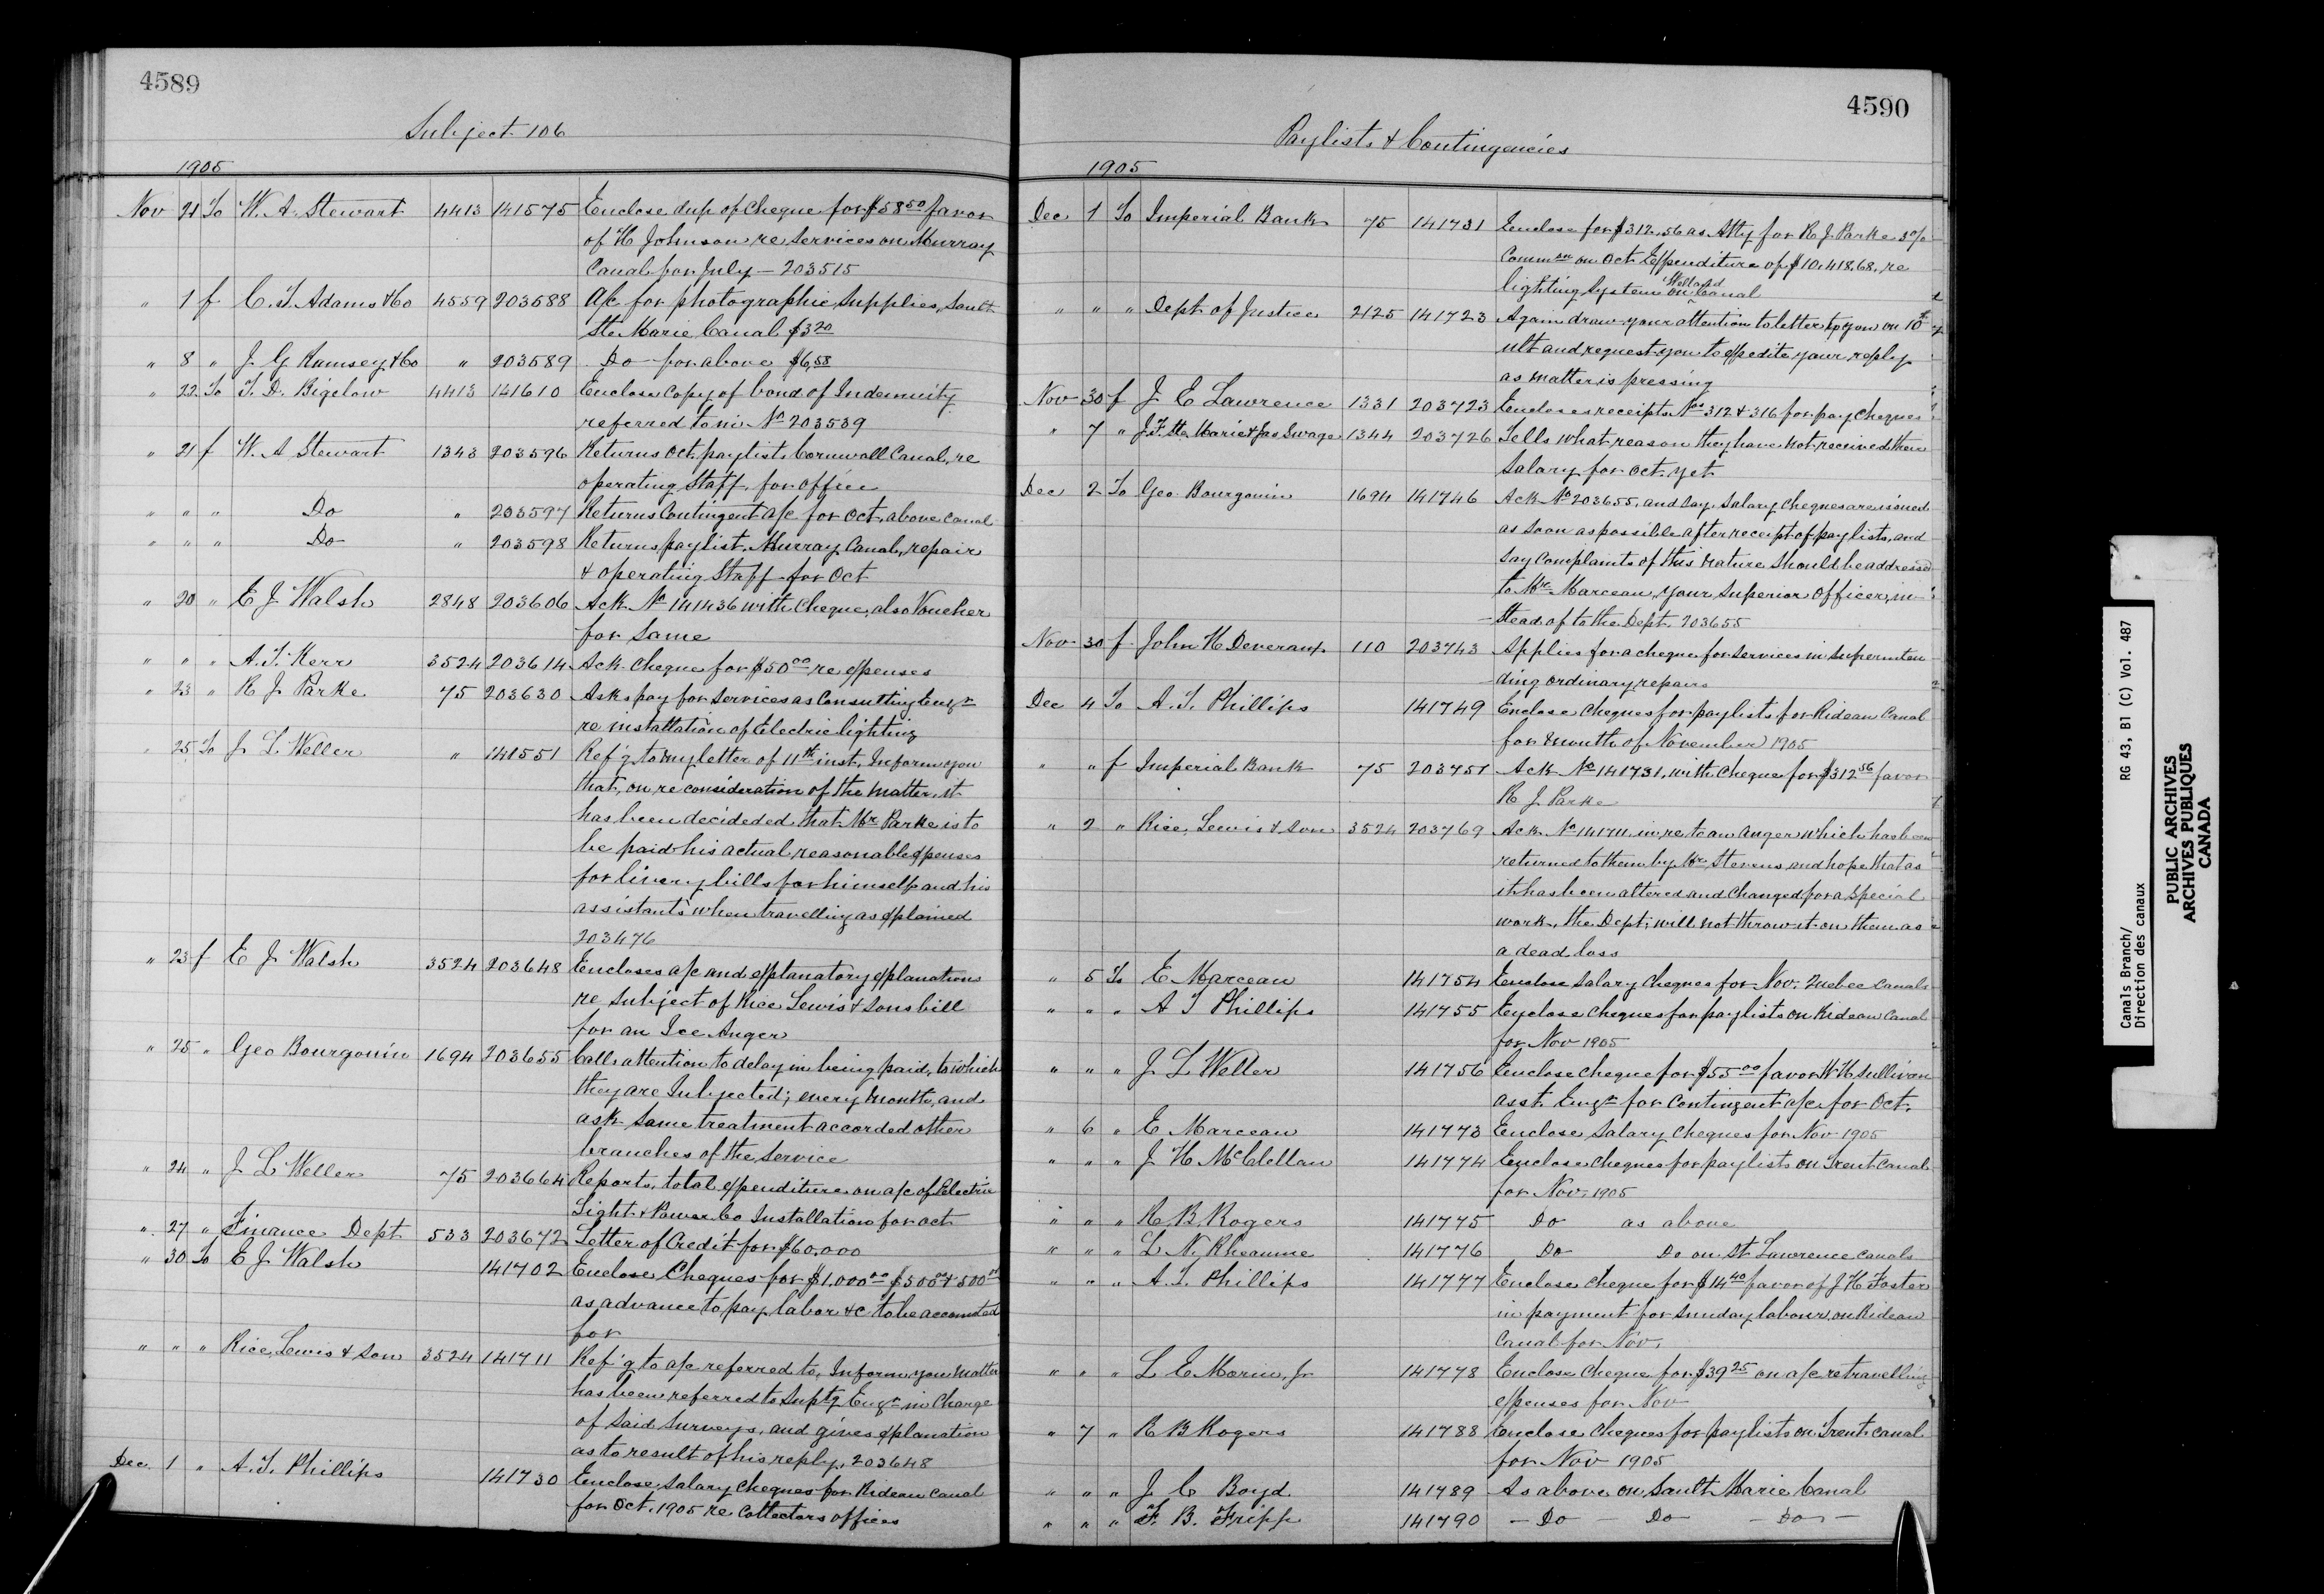 4589
Subject 106
1905
Nov 21 To W. A. Stewart 4413 141575 Enclose dup of cheque for $58 50 favor
of H Johnson re Services on Murray
Canal for July — 203515
" 1 f C. T. Adams & Co 4559 203588 A/c for photographic Supplies, Sault
Ste Marie Canal $3 20
" 8 " J. G Ramsey & Co " 203589 Do for above $6.58
" 22 To T. D. Bigelow 4413 141610 Enclose copy of bond of Indemnity
referred to in No 203539
" 21 f W. A Stewart 1343 203596 Returns Oct. paylist, Cornwall Canal, re
operating Staff, for office
" " " Do " 203597 Returns Contingent a/c for Oct, above canal
" " " Do " 203598 Returns paylist, Murray Canal, repair
& operating Staff for Oct
" 20 " E J Walsh 2848 203606 Ack No 141436 with Cheque, also Voucher
for Same
" " " A. T. Kerr 3524 203614 Ack cheque for $50 00 re expenses
" 23 " R J Parke 75 203630 Asks pay for services as Consulting Engr
re installation of Electric lighting
" 25 To J L Weller " 141551 Ref'g to my letter of 11th inst. Inform you
that, on reconsideration of the matter, it
has been decideded that Mr Parke is to
be paid his actual reasonable expenses
for livery bills for himself and his
assistants when travelling as explained
203476
" 23 f E J Walsh 3524 203648 Encloses a/c and explanatory explanations
re Subject of Rice Lewis & Sons bill
for an Ice Auger
" 25 " Geo Bourgouin 1694 203655 Calls attention to delay in being paid, to which
they are Subjected; every month, and
ask Same treatment accorded other
branches of the Service
" 24 " J L Weller 75 203664 Reports, total expenditure on a/c of Electric
Light & Power Co Installation for Oct
" 27 " Finance Dept 533 203672 Letter of Credit for $60,000
" 30 To E J Walsh 141702 Enclose Cheques for $1,000 00 $500 00 & 500 00
as advance to pay labor &c to be accounted
for
" " " Rice, Lewis & Son 3524 141711 Ref'g to a/c referred to, Inform you matter
has been referred to Suptg Engr in Charge
of Said Surveys, and gives explanation
as to result of his reply, 203648
Dec. 1 " A. T. Phillips 141730 Enclose, Salary cheques for Rideau Canal
for Oct. 1905 re Collectors offices
4590
Paylists & Contingencies
1905
Dec 1 To Imperial Bank 75 141731 Enclose for $312.56 as Atty for R J. Parke 3%
Commsn on Oct Expenditure of $10,418.68, re
lighting System on Welland Canal
" " " Dept of Justice 2125 141723 Again draw your attention to letter to you on 10th
ult and request you to expedite your reply
as matter is pressing
Nov 30 f J E Lawrence 1331 203723 Encloses receipts Nos 312 & 316 for pay cheques
" 7 " J. F. Ste Marie & Jas Swage 1344 203726 Tells what reason they have not received their
Salary for Oct. yet
Dec 2 To Geo Bourgouin 1694 141746 Ack No 203655, and say, Salary cheques are issued
as soon as possible after receipt of paylists, and
say complaints of this nature should be addressed
to Mr Marceau, your superior officer, in-
stead of to the Dept. 203655
Nov 30 f John H Devereaux 110 203743 Applies for a cheque for services in Superinten
ding ordinary repairs
Dec 4 To A. T. Phillips 141749 Enclose Cheques for paylists for Rideau Canal
for month of November 1905
" " f Imperial Bank 75 203751 Ack No 141731, with Cheque for $312 56 favor
R J. Parke
" 2 " Rice, Lewis & Son 3524 203769 Ack No 141711, in re to an Auger which has been
returned to them by Mr Stevens, and hope that as
it has been altered and changed for a special
work, the Dept; will not throw it on them as
a dead loss
" 5 To E Marceau 141754 Enclose Salary Cheques for Nov. Quebec Canals
" " " A T Phillips 141755 Enclose Cheques for paylists on Rideau Canal
for Nov 1905
" " " J L Weller 141756 Enclose cheque for $55 00 favor W H Sullivan
asst. Engr for Contingent a/c for Oct.
" 6 " E Marceau 141773 Enclose, Salary Cheques for Nov 1905
" " " J H McClellan 141774 Enclose Cheques for paylists on Trent Canal
for Nov. 1905
" " " R B Rogers 141775 Do as above
" " " L N. Rheaume 141776 Do Do on St. Lawrence Canals
" " " A. T. Phillips 141777 Enclose Cheque for $14 40 favor of J H Foster
in payment for Sunday labour, on Rideau
Canal for Nov.
" " " L E Morin, Jr 141778 Enclose Cheque for $39 25 on a/c re travelling
expenses for Nov
" 7 " R B Rogers 141788 Enclose Cheques for paylists on Trent Canal
for Nov 1905
" " " J C Boyd 141789 As above on Sault Marie Canal
" " " F. B. Fripp 141790 — Do — Do — Do —
Canals Branch/ RG 43, B1 (C) Vol. 487
Direction des canaux
PUBLIC ARCHIVES
ARCHIVES PUBLIQUES
CANADA